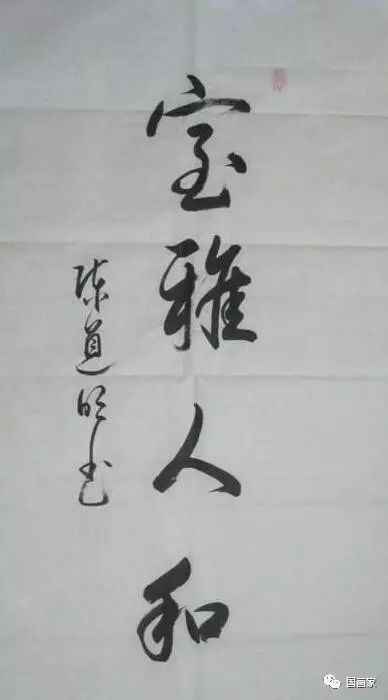 室雅人和
陈道明书
国画家